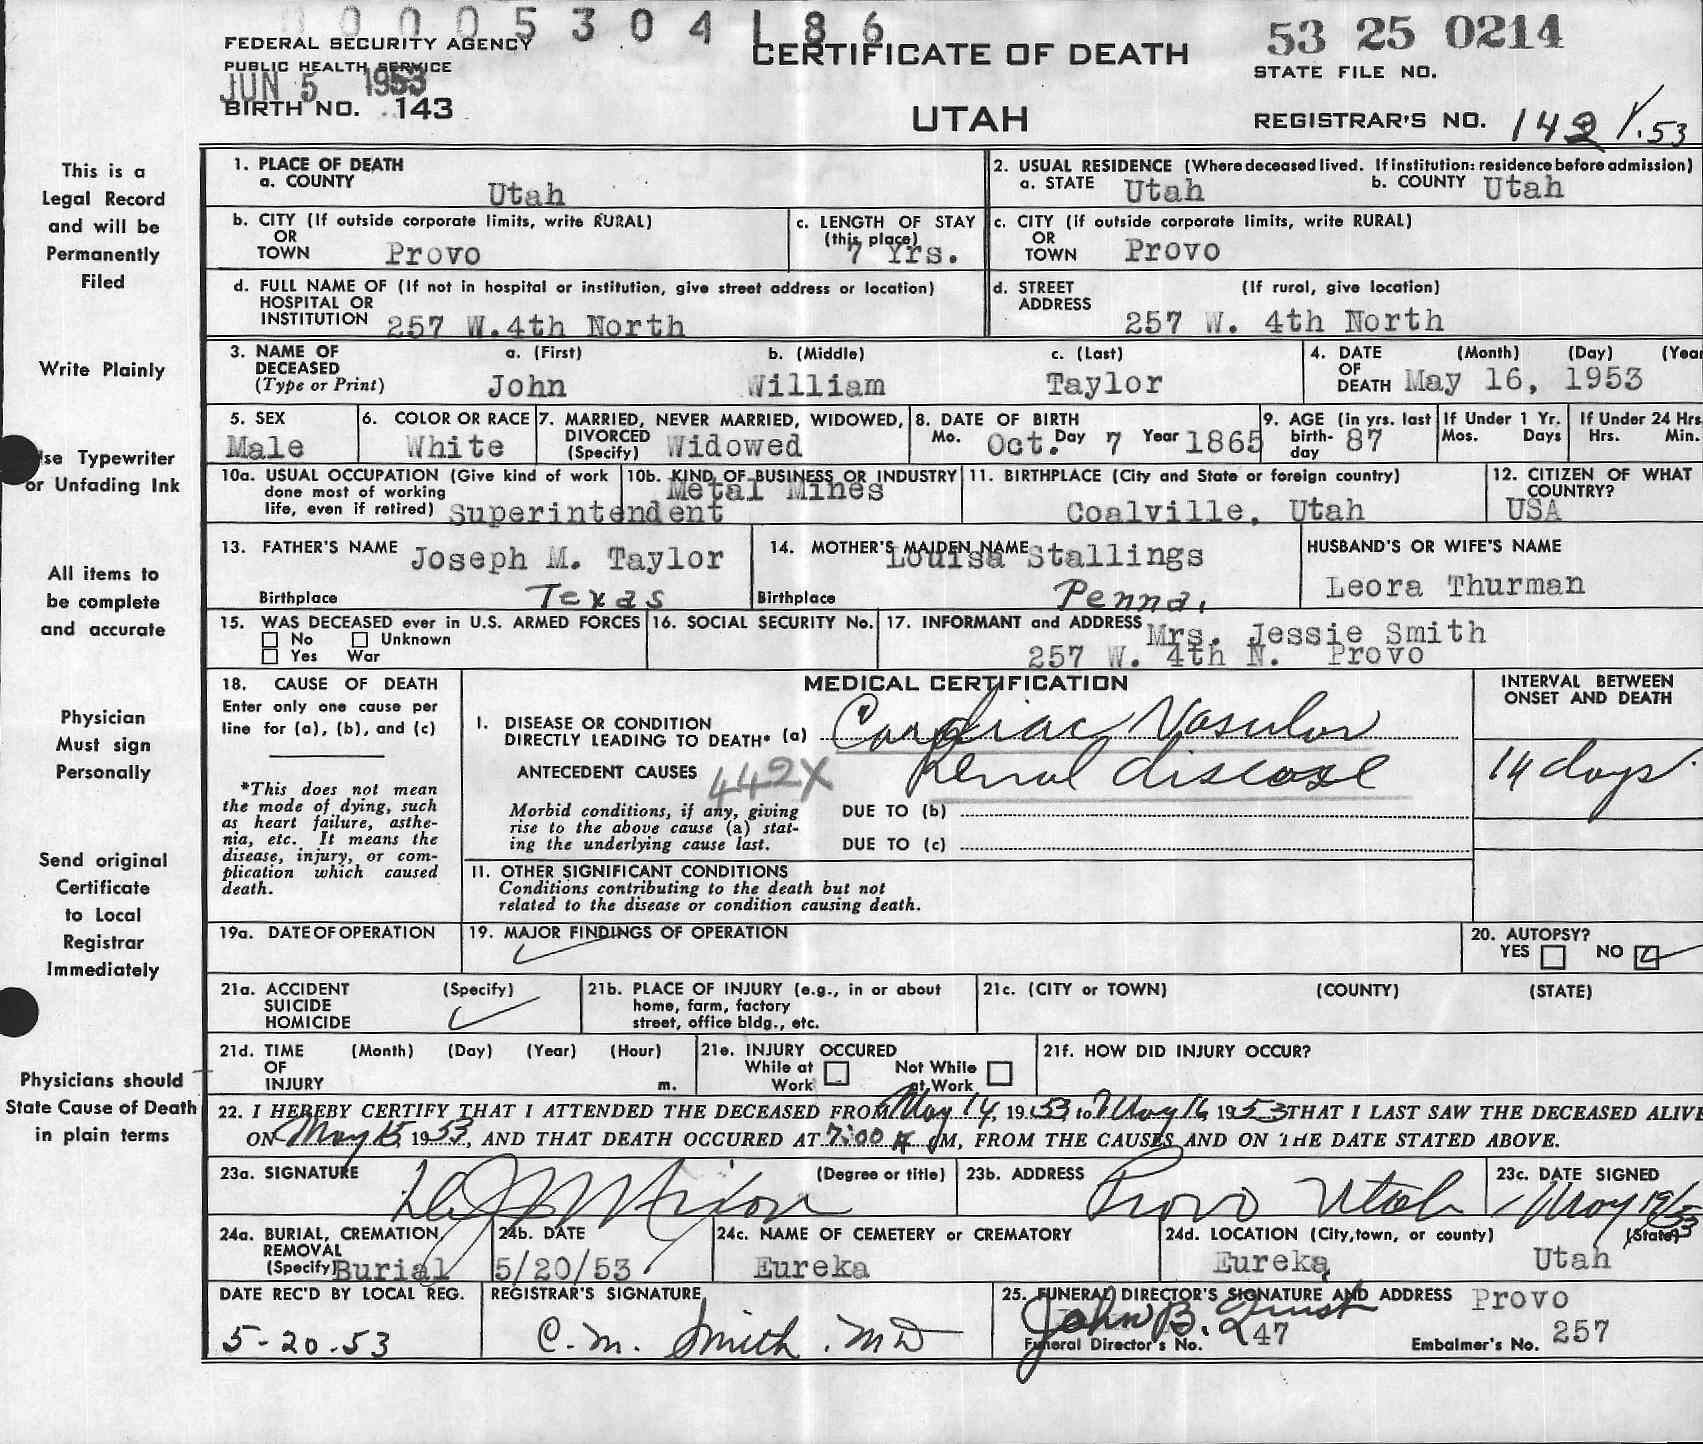 0 0 0 5 3 0 4 1 8 6
FEDERAL SECURITY AGENCY
PUBLIC HEALTH SERVICE
JUN 5 1953
BIRTH NO. 143
CERTIFICATE OF DEATH
UTAH
53 25 0214
STATE FILE NO.
REGISTRAR'S NO. 142 1/.53
This is a
Legal Record
and will be
Permanently
Filed
Write Plainly
Use Typewriter
or Unfading Ink
All items to
be complete
and accurate
Physician
Must sign
Personally
Send original
Certificate
to Local
Registrar
Immediately
Physicians should
State Cause of Death
in plain terms
1. PLACE OF DEATH
a. COUNTY Utah
2. USUAL RESIDENCE (Where deceased lived. If institution: residence before admission)
a. STATE Utah b. COUNTY Utah
b. CITY (If outside corporate limits, write RURAL)
OR
TOWN Provo
c. LENGTH OF STAY
(this place)
7 Yrs.
c. CITY (if outside corporate limits, write RURAL)
OR
TOWN Provo
d. FULL NAME OF (If not in hospital or institution, give street address or location)
HOSPITAL OR
INSTITUTION 257 W.4th North
d. STREET (If rural, give location)
ADDRESS
257 W. 4th North
3. NAME OF a. (First) b. (Middle) c. (Last)
DECEASED
(Type or Print) John William Taylor
4. DATE (Month) (Day) (Year
OF
DEATH May 16, 1953
5. SEX
Male
6. COLOR OR RACE
White
7. MARRIED, NEVER MARRIED, WIDOWED,
DIVORCED
(Specify) Widowed
8. DATE OF BIRTH
Mo. Oct. Day 7 Year 1865
9. AGE (in yrs. last
birth-
day 87
If Under 1 Yr.
Mos. Days
If Under 24 Hrs
Hrs. Min.
10a. USUAL OCCUPATION (Give kind of work
done most of working
life, even if retired) Superintendent
10b. KIND OF BUSINESS OR INDUSTRY
Metal Mines
11. BIRTHPLACE (City and State or foreign country)
Coalville, Utah
12. CITIZEN OF WHAT
COUNTRY?
USA
13. FATHER'S NAME Joseph M. Taylor
Birthplace Texas
14. MOTHER'S MAIDEN NAME Louisa Stallings
Birthplace Penna.
HUSBAND'S OR WIFE'S NAME
Leora Thurman
15. WAS DECEASED ever in U.S. ARMED FORCES
No Unknown
Yes War
16. SOCIAL SECURITY No.
17. INFORMANT and ADDRESS Mrs. Jessie Smith
257 W. 4th N. Provo
18. CAUSE OF DEATH
Enter only one cause per
line for (a), (b), and (c)
*This does not mean
the mode of dying, such
as heart failure, asthe-
nia, etc. It means the
disease, injury, or com-
plication which caused
death.
MEDICAL CERTIFICATION
I. DISEASE OR CONDITION
DIRECTLY LEADING TO DEATH* (a) Cardiac Vasular
Renal disease
ANTECEDENT CAUSES 442X
Morbid conditions, if any, giving
rise to the above cause (a) stat-
ing the underlying cause last.
DUE TO (b)
DUE TO (c)
II. OTHER SIGNIFICANT CONDITIONS
Conditions contributing to the death but not
related to the disease or condition causing death.
INTERVAL BETWEEN
ONSET AND DEATH
14 days
19a. DATE OF OPERATION
19. MAJOR FINDINGS OF OPERATION
20. AUTOPSY?
YES NO
21a. ACCIDENT (Specify)
SUICIDE
HOMICIDE
21b. PLACE OF INJURY (e.g., in or about
home, farm, factory
street, office bldg., etc.
21c. (CITY or TOWN) (COUNTY) (STATE)
21d. TIME (Month) (Day) (Year) (Hour)
OF
INJURY m.
21e. INJURY OCCURED
While at Not While
Work at Work
21f. HOW DID INJURY OCCUR?
22. I HEREBY CERTIFY THAT I ATTENDED THE DECEASED FROM May 14, 1953 to May 16 1953 THAT I LAST SAW THE DECEASED ALIVE
ON May 15, 1953, AND THAT DEATH OCCURED AT 7:00 M, FROM THE CAUSES AND ON THE DATE STATED ABOVE.
23a. SIGNATURE (Degree or title)
23b. ADDRESS Provo Utah
23c. DATE SIGNED
May 19/53
24a. BURIAL, CREMATION,
REMOVAL
(Specify) Burial
24b. DATE
5/20/53
24c. NAME OF CEMETERY or CREMATORY
Eureka
24d. LOCATION (City, town, or county) (State)
Eureka, Utah
DATE REC'D BY LOCAL REG.
5-20-53
REGISTRAR'S SIGNATURE
C. M. Smith. MD
25. FUNERAL DIRECTOR'S SIGNATURE AND ADDRESS Provo
John B.
Funeral Director's No. 247
Embalmer's No. 257